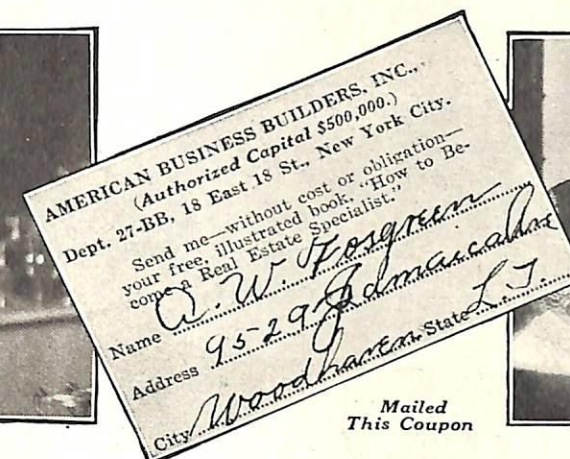 AMERICAN BUSINESS BUILDERS, INC.,
(Authorized Capital $500,000.)
Dept. 27-BB, 18 East 18 St., New York City.
Send me—without cost or obligation—
your free, illustrated book, "How to Be-
come a Real Estate Specialist."
Name A. W. Fosgreen
Address 95-29 Jamaica Ave
City Woodhaven State L.I.
Mailed
This Coupon